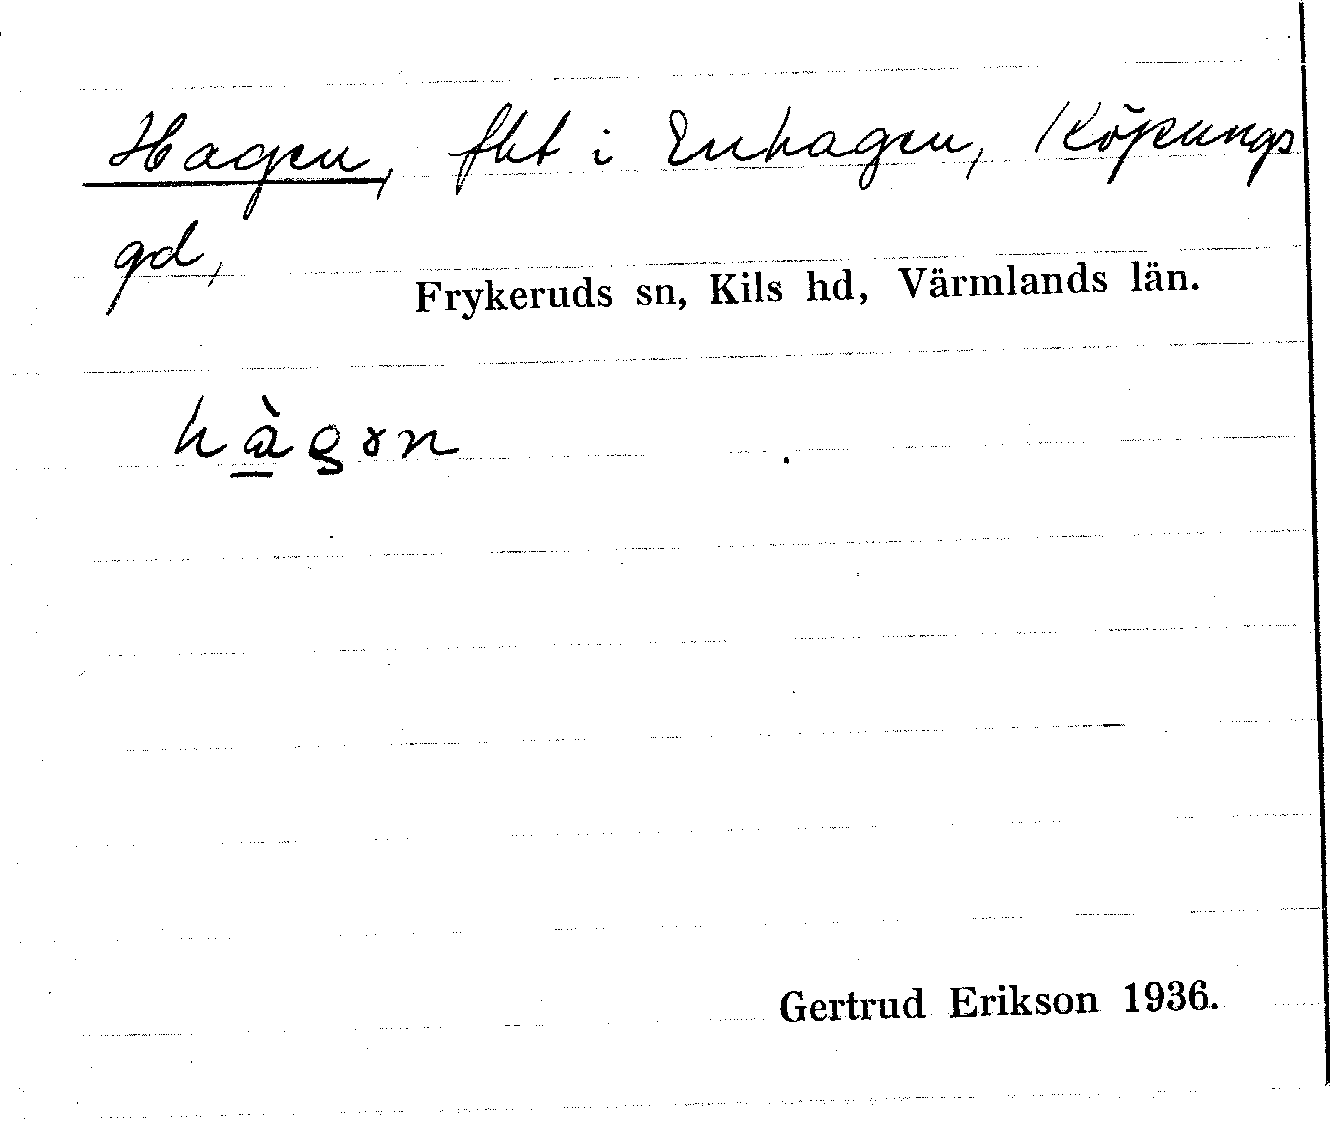 Hagen, fht i Enhagen, Köpungs
gd,
Frykeruds sn, Kils hd, Värmlands län.
hàgɤn
Gertrud Erikson 1936.